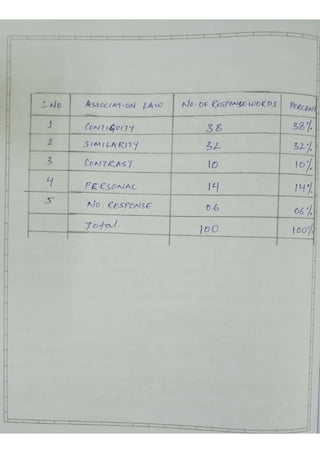 S.NO. ASSOCIATION LAW NO. OF RESPONSE WORDS PERCENT
1 CONTIGUITY 38 38%
2 SIMILARITY 32 32%
3 CONTRAST 10 10%
4 PERSONAL 14 14%
5 NO. RESPONSE 06 06%
Total 100 100%